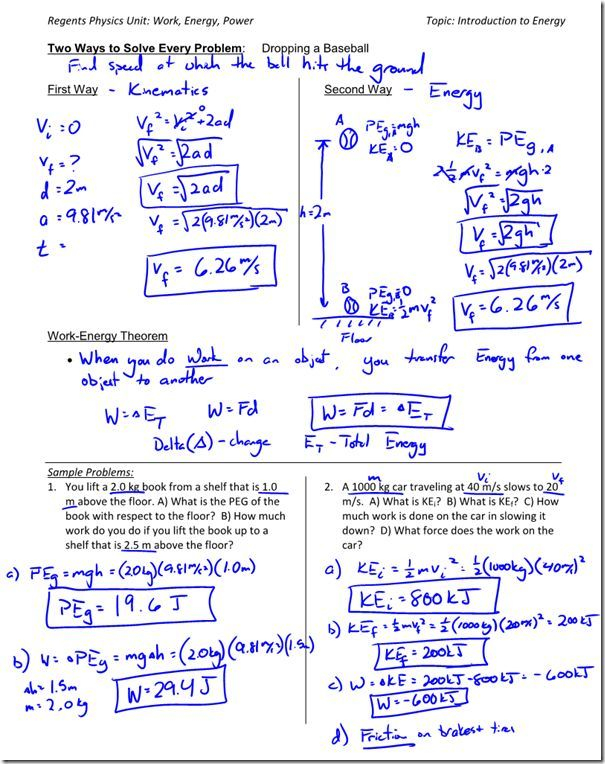 Regents Physics Unit: Work, Energy, Power
Topic: Introduction to Energy
Two Ways to Solve Every Problem: Dropping a Baseball
Find speed at which the ball hits the ground
First Way - Kinematics
Vi = 0
Vf = ?
d = 2m
a = 9.81 m/s²
t =
Vf² = Vi² + 2ad
0
√Vf² = √2ad
Vf = √2ad
Vf = √2(9.81m/s²)(2m)
Vf = 6.26 m/s
Second Way - Energy
A
PEg,A = mgh
KEA = 0
h = 2m
B
PEg,B = 0
KEB = ½mVf²
Floor
KEB = PEg,A
2 ½mVf² = mgh·2
√Vf² = √2gh
Vf = √2gh
Vf = √2(9.81m/s²)(2m)
Vf = 6.26 m/s
Work-Energy Theorem
• When you do Work on an object, you transfer Energy from one
object to another
W = ΔET W = Fd W = Fd = ΔET
Delta(Δ) - change ET - Total Energy
Sample Problems:
1. You lift a 2.0 kg book from a shelf that is 1.0
m above the floor. A) What is the PEG of the
book with respect to the floor? B) How much
work do you do if you lift the book up to a
shelf that is 2.5 m above the floor?
a) PEg = mgh = (2.0kg)(9.81m/s²)(1.0m)
PEg = 19.6 J
b) W = ΔPEg = mgΔh = (2.0kg)(9.81m/s²)(1.5m)
Δh = 1.5m
m = 2.0kg
W = 29.4 J
m Vi Vf
2. A 1000 kg car traveling at 40 m/s slows to 20
m/s. A) What is KEi? B) What is KEf? C) How
much work is done on the car in slowing it
down? D) What force does the work on the
car?
a) KEi = ½mVi² = ½(1000kg)(40m/s)²
KEi = 800kJ
b) KEf = ½mVf² = ½(1000kg)(20m/s)² = 200kJ
KEf = 200kJ
c) W = ΔKE = 200kJ - 800kJ = -600kJ
W = -600kJ
d) Friction on brakes + tires